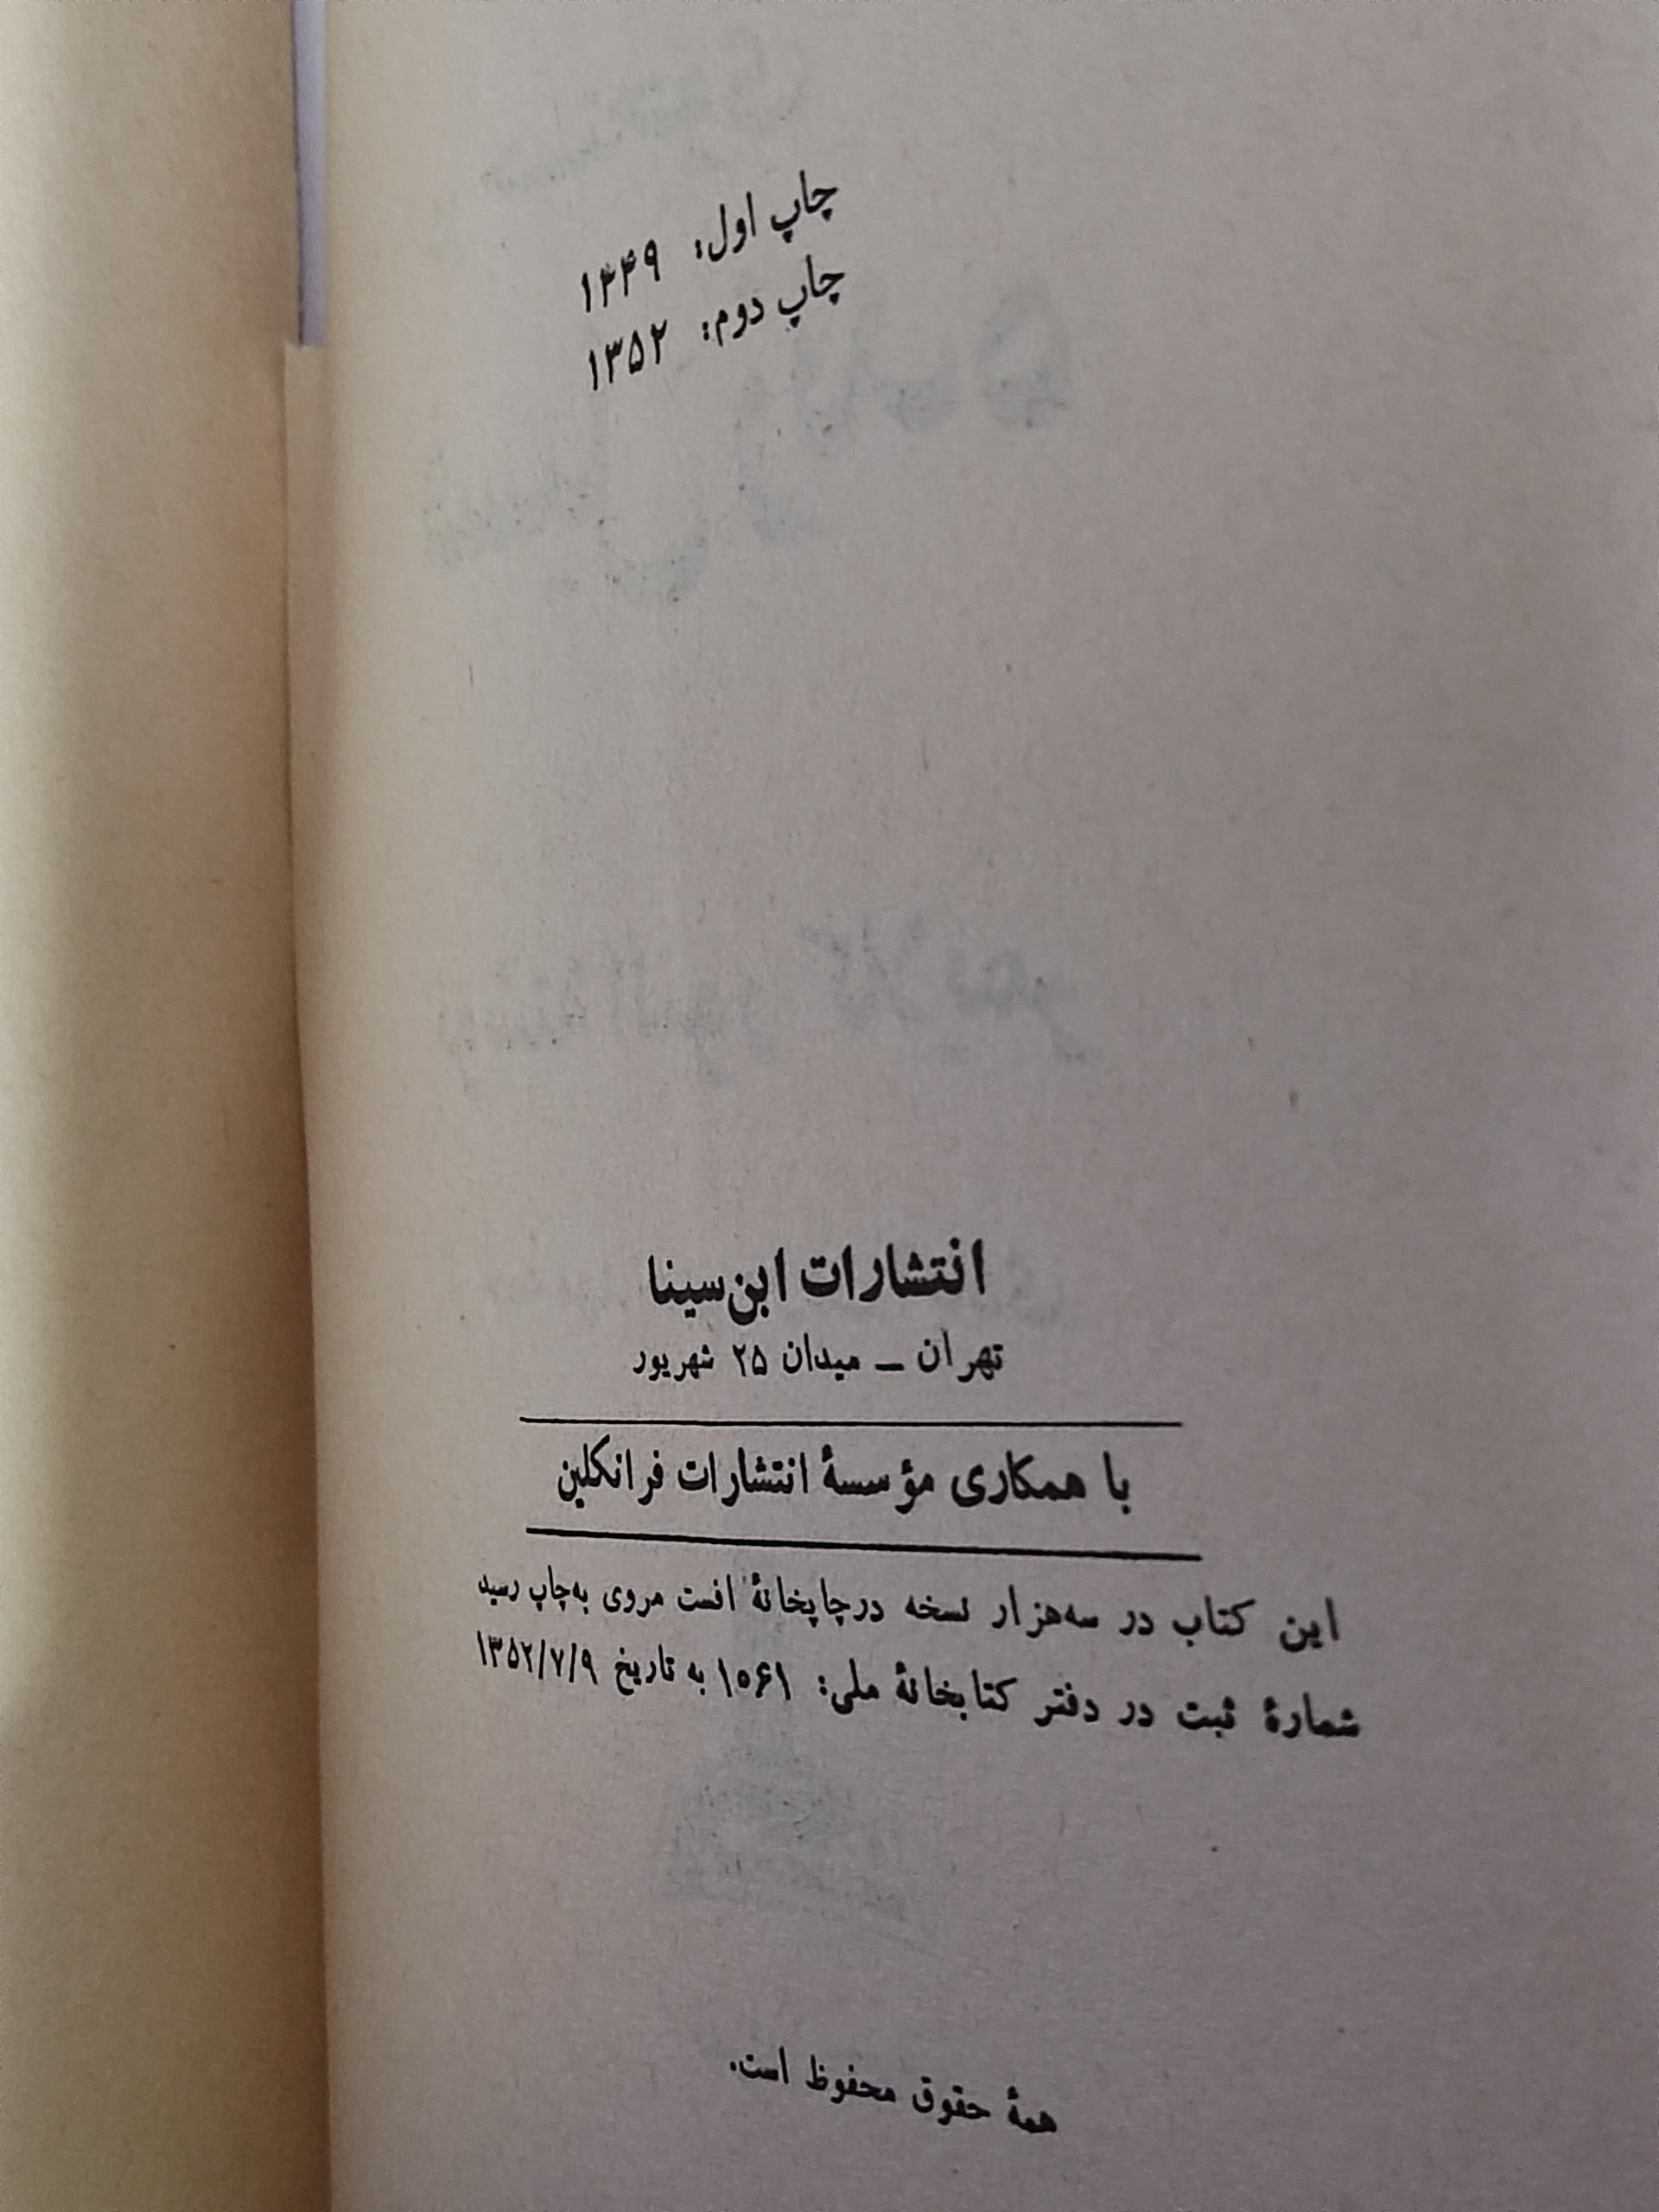 چاپ اول: ۱۳۴۹
چاپ دوم: ۱۳۵۲
انتشارات ابن‌سینا
تهران – میدان ۲۵ شهریور
با همکاری مؤسسهٔ انتشارات فرانکلین
این کتاب در سه‌هزار نسخه درچاپخانهٔ افست مروی به‌چاپ رسید
شمارهٔ ثبت در دفتر کتابخانهٔ ملی: ۱۰۶۱ به تاریخ ۱۳۵۲/۷/۹
همهٔ حقوق محفوظ است.